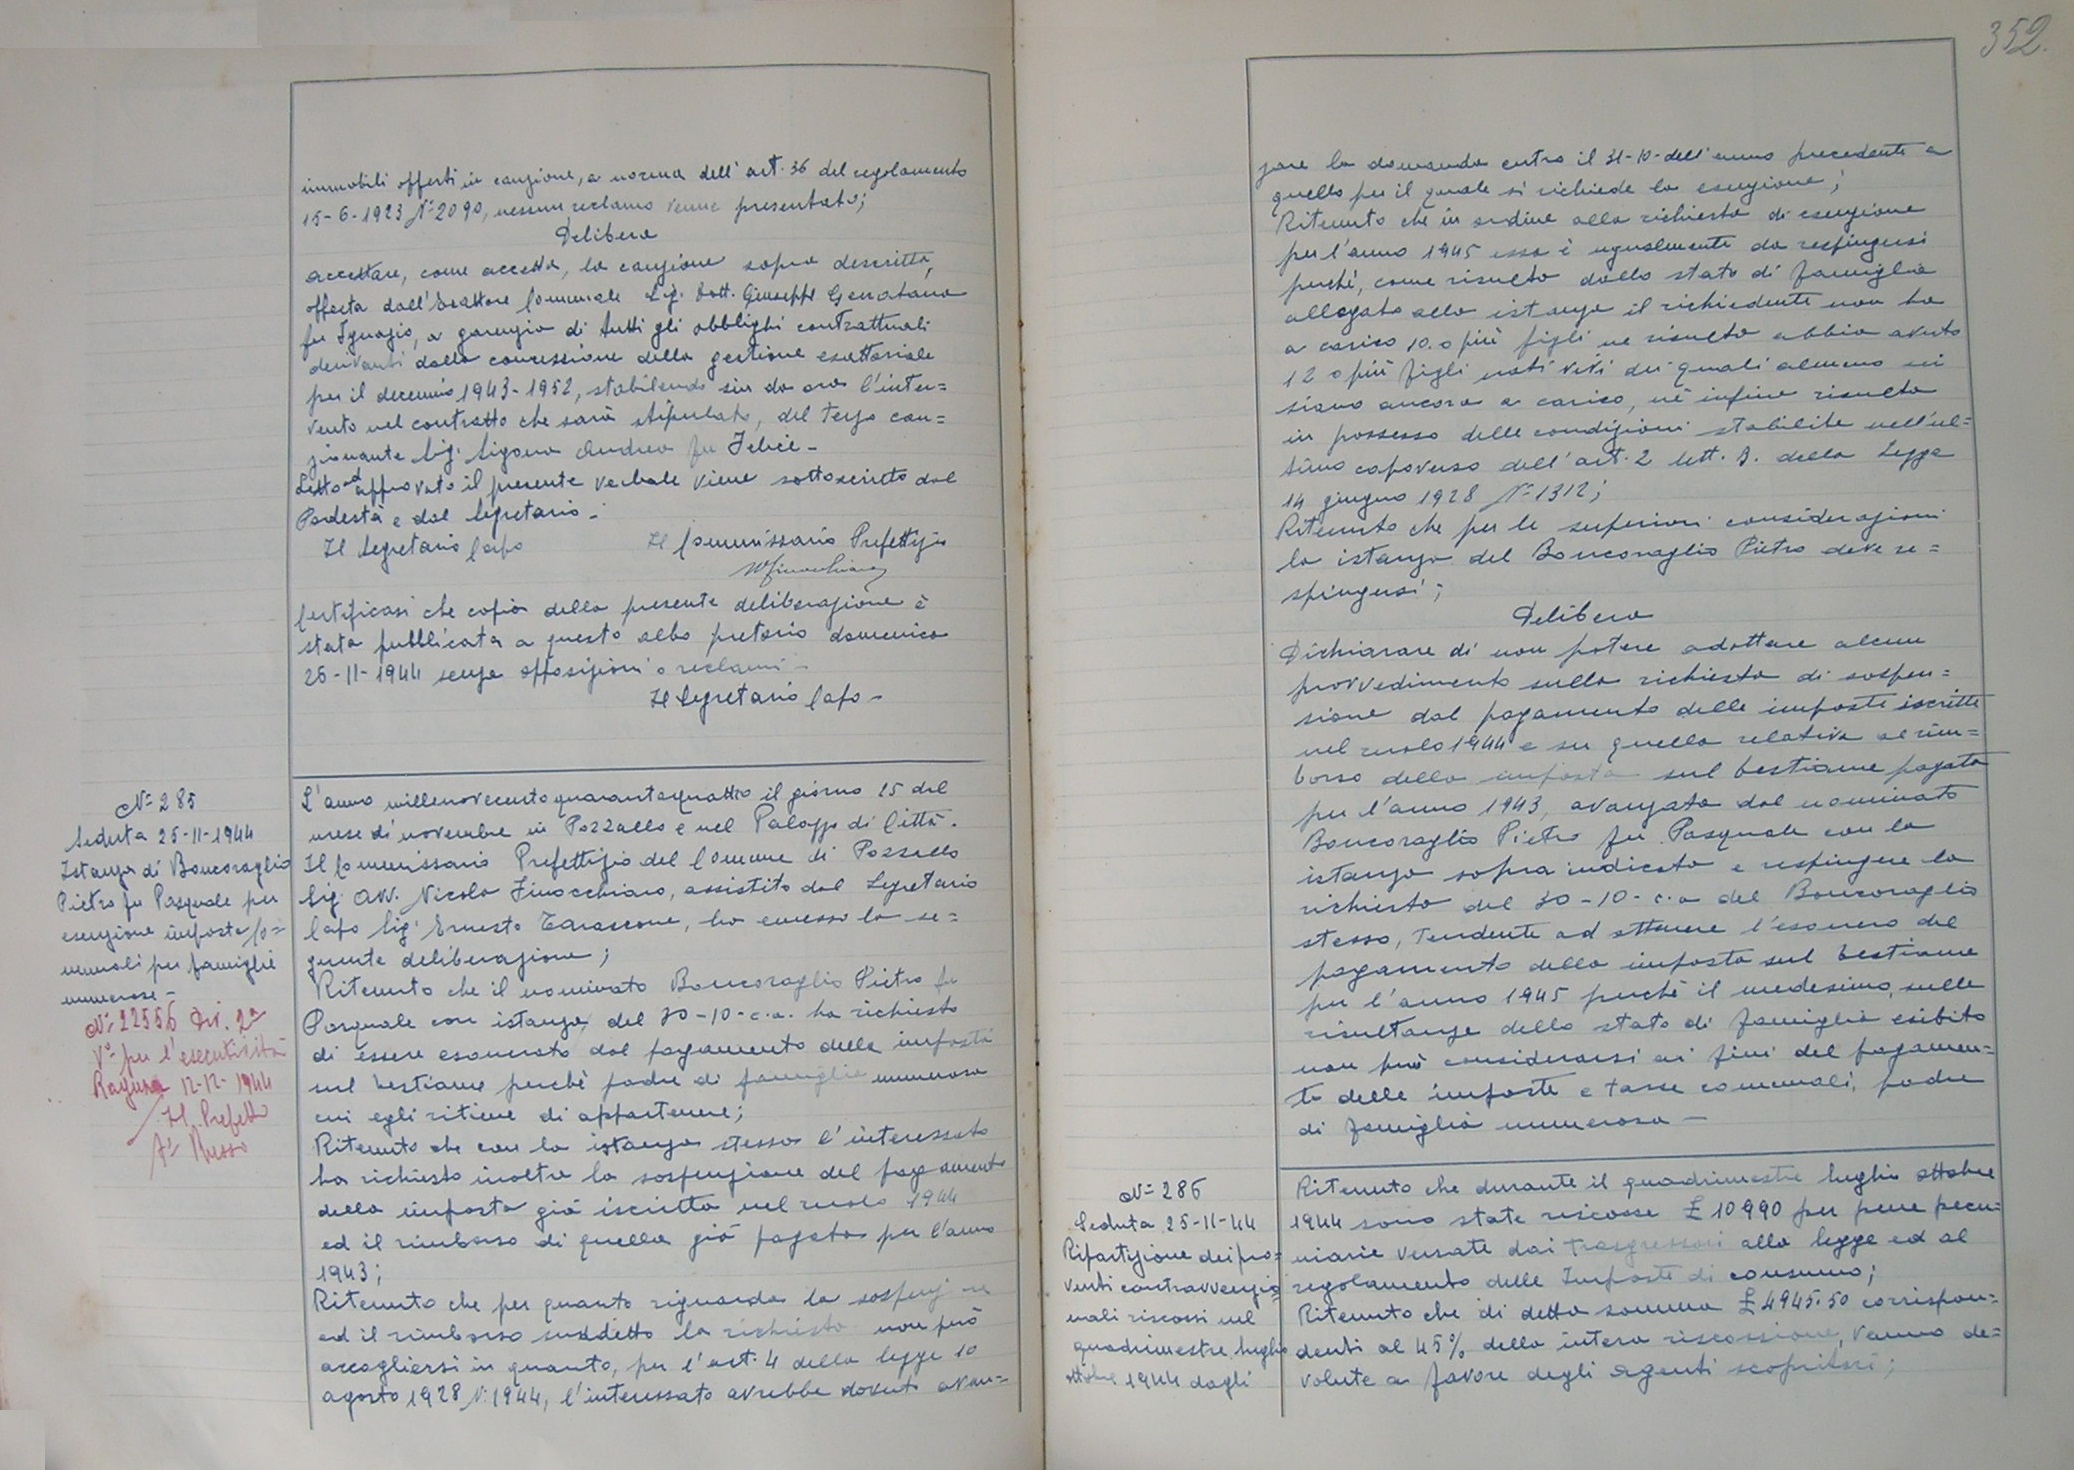 immobili offerti in cauzione, a norma dell'art. 36 del regolamento
15-6-1923 Nº 2090, nessun reclamo venne presentato;
Delibera
accettare, come accetta, la cauzione sopra descritta,
offerta dall'Esattore Comunale Sig. Dott. Giuseppe
fu Ignazio, a garenzia di tutti gli obblighi contrattuali
derivanti dalla concessione della gestione esattoriale
per il decennio 1943-1952, stabilendo sin da ora l'inter=
vento nel contratto che sarà stipulato, del terzo cau=
zionante Sig. Sigona Andrea fu Felice-
Letto ed approvato il presente verbale viene sottoscritto dal
Podestà e dal Segretario-
Il Segretario Capo Il Commissario Prefettizio
Certificasi che copia della presente deliberazione è
stata pubblicata a questo albo pretorio domenica
26-11-1944 senza opposizioni o reclami-
Il Segretario Capo-
Nº 285
Seduta 25-11-1944
Istanza di Boncoraglio
Pietro fu Pasquale per
esenzione imposte Co=
munali per famiglie
numerose-
Nº 22556 Div. 2ª
Vº per l'esecutività
Ragusa 12-12-1944
Il Prefetto
Fº Russo
L'anno millenovecentoquarantaquattro il giorno 25 del
mese di novembre in Pozzallo e nel Palazzo di Città.
Il Commissario Prefettizio del Comune di Pozzallo
Sig. Avv. Nicola Finocchiaro, assistito dal Segretario
Capo Sig. Ernesto Tarascone, ha emesso la se=
guente deliberazione;
Ritenuto che il nominato Boncoraglio Pietro fu
Pasquale con istanza del 30-10-c.a. ha richiesto
di essere esonerato dal pagamento della imposta
sul bestiame perchè padre di famiglia numerosa
cui egli ritiene di appartenere;
Ritenuto che con la istanza stessa l'interessato
ha richiesto inoltre la sospenzione del pagamento
della imposta già iscritta nel ruolo 1944
ed il rimborso di quella già pagata per l'anno
1943;
Ritenuto che per quanto riguarda la
ed il rimborso suddetto la richiesta non può
accogliersi in quanto, per l'art. 4 della legge 10
agosto 1928 N. 1944, l'interessato avrebbe dovuto avan=
352.
zare la domanda entro il 31-10-dell'anno precedente a
quello per il quale si richiede la esenzione;
Ritenuto che in ordine alla richiesta di esenzione
per l'anno 1945 essa è ugualmente da respingersi
perchè, come risulta dallo stato di famiglia
allegato alla istanza il richiedente non ha
a carico 10 o più figli ne risulta abbia avuto
12 o più figli nati vivi dei quali almeno sei
siano ancora a carico, nè infine risulta
in possesso delle condizioni stabilite nell'ul=
timo capoverso dell'art. 2 lett. B. della Legge
14 giugno 1928 Nº 1312;
Ritenuto che per le superiori considerazioni
la istanza del Boncoraglio Pietro deve re=
spingersi;
Delibera
Dichiarare di non potere adottare alcun
provvedimento sulla richiesta di sospen=
sione dal pagamento delle imposte iscritte
nel ruolo 1944 e su quella relativa al rim=
borso della imposta sul bestiame pagata
per l'anno 1943, avanzata dal nominato
Boncoraglio Pietro fu Pasquale con la
istanza sopra indicata e respingere la
richiesta del 30-10-c.a del Boncoraglio
stesso, tendente ad ottenere l'esonero del
pagamento della imposta sul bestiame
per l'anno 1945 perchè il medesimo, sulle
risultanze dello stato di famiglia esibito
non può considerarsi ai fini del pagamen=
to delle imposte e tasse comunali, padre
di famiglia numerosa-
Nº 286
Seduta 25-11-44
Ripartizione dei pro=
venti contravvenzio=
nali riscossi nel
quadrimestre luglio
ottobre 1944 dagli
Ritenuto che durante il quadrimestre luglio ottobre
1944 sono state riscosse £ 10990 per pene pecu=
niarie versate dai trasgressori alla legge ed al
regolamento delle Imposte di consumo;
Ritenuto che di detta somma £ 4945.50 corrispon=
denti al 45% della intera riscossione, vanno de=
volute a favore degli agenti scopritori;